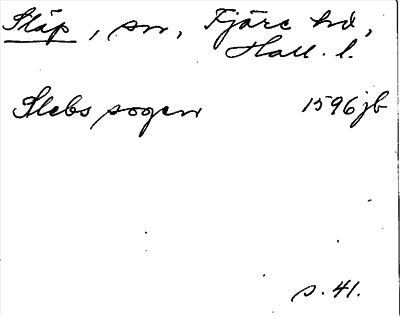 Släp, sn, Fjäre hd,
Hall. l.
Slebs sogen 1596 jb
s. 41.